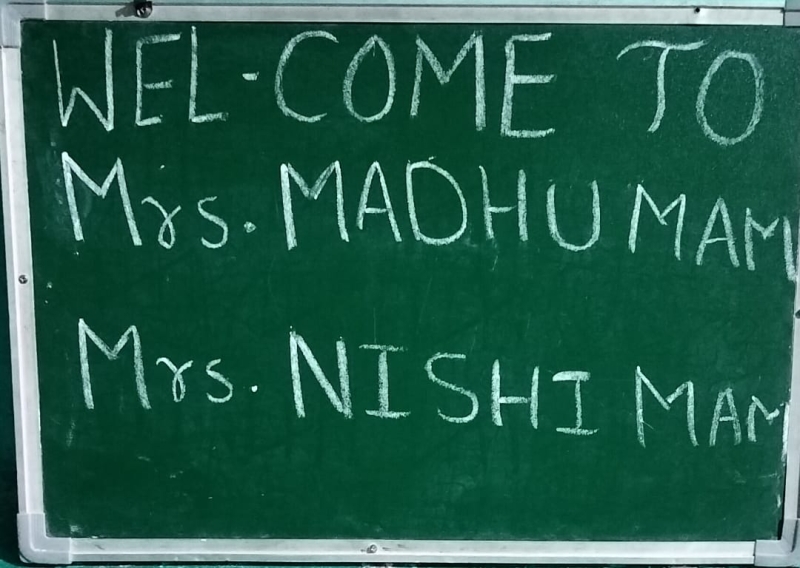 WEL-COME TO
Mrs. MADHU MAM
Mrs. NISHI MAM